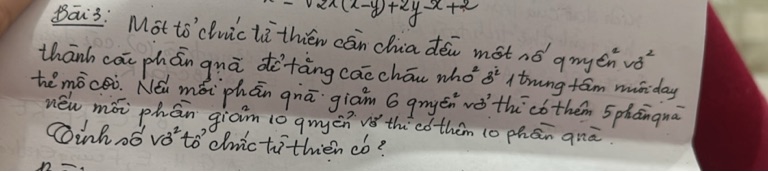 √2x(x-y)+2y-x+2
Bài 3: Một tổ chức từ thiện cần chia đều một số quyển vở
thành các phần quà để tặng các cháu nhỏ ở 1 trung tâm nuôi dạy
trẻ mồ côi. Nếu mỗi phần quà giảm 6 quyển vở thì có thêm 5 phần quà
nếu mỗi phần giảm 10 quyển vở thì có thêm 10 phần quà.
Tính số vở tổ chức từ thiện có?